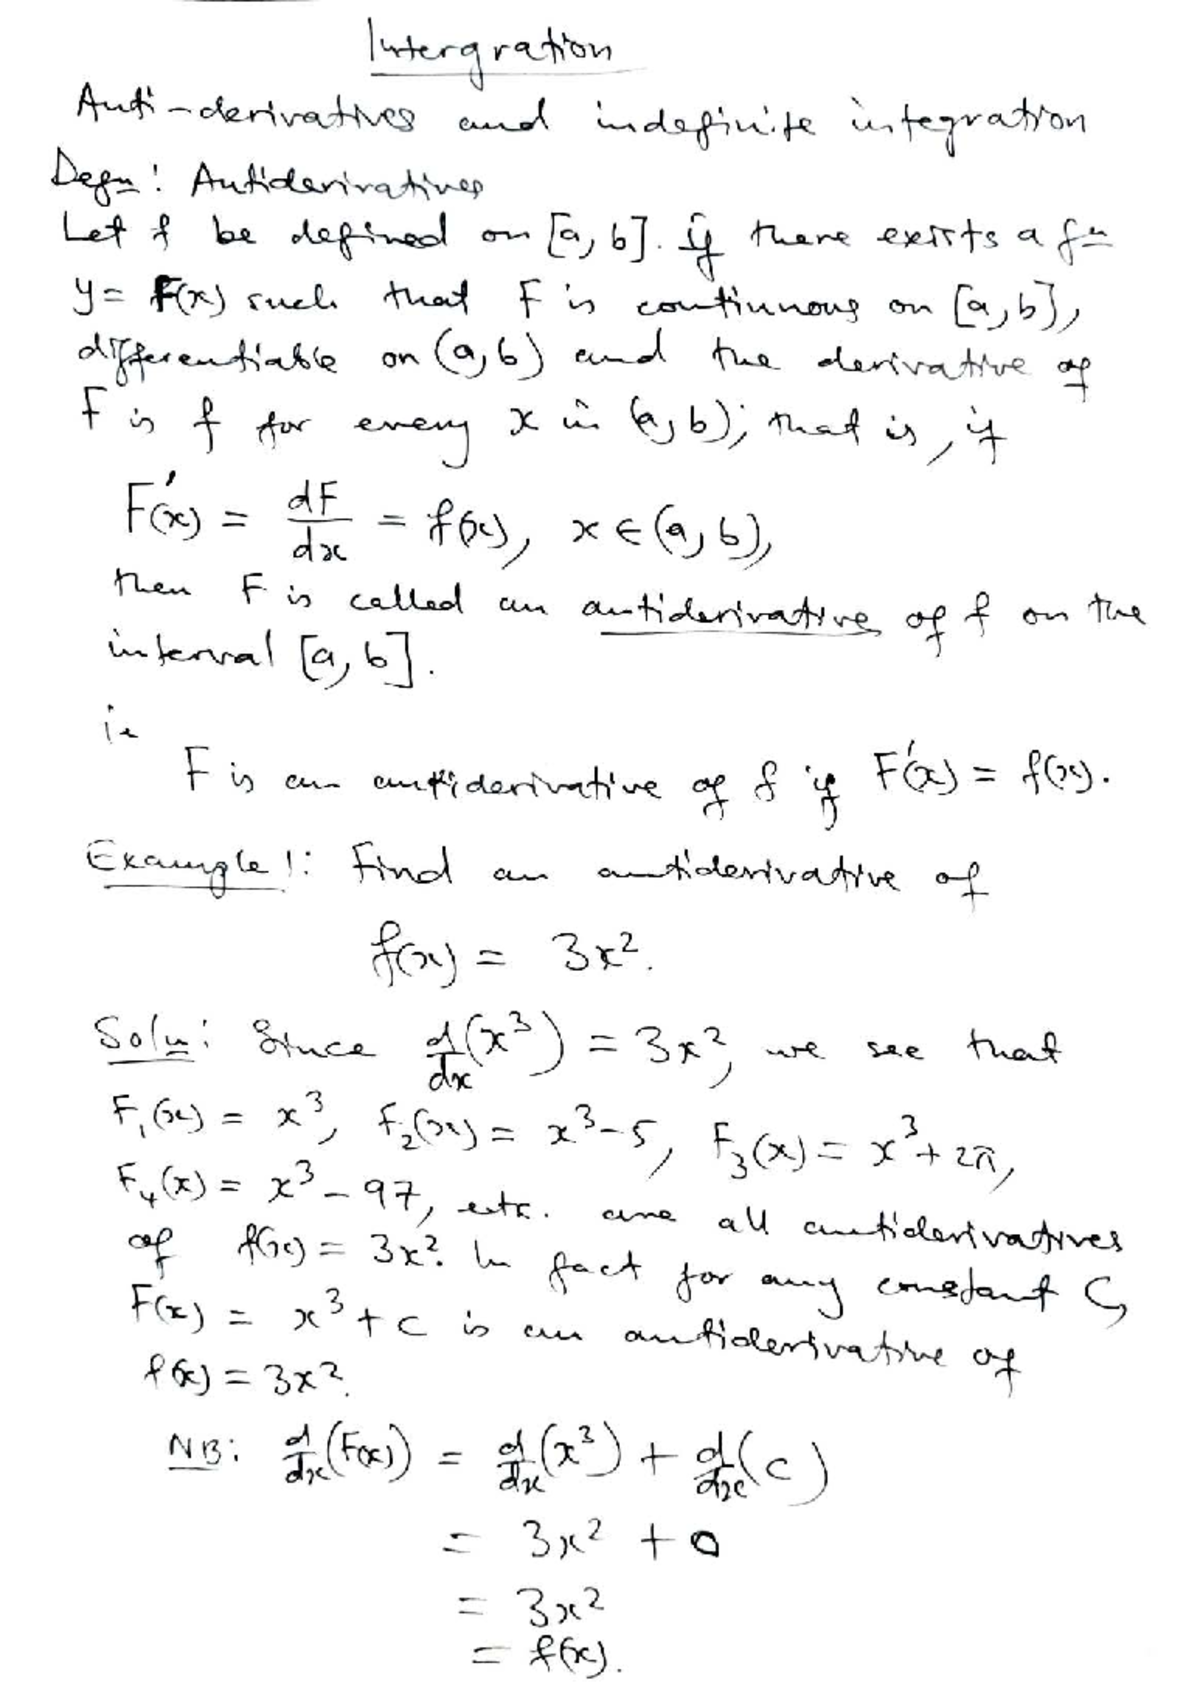 Intergration
Anti-derivatives and indefinite integration
Defn: Antiderivatives
Let f be defined on [a, b]. if there exists a fn
y = F(x) such that F is continuous on [a, b],
differentiable on (a, b) and the derivative of
F is f for every x in (a, b); that is, if
F'(x) = dF/dx = f(x), x ∈ (a, b),
then F is called an antiderivative of f on the
interval [a, b].
ie
F is an antiderivative of f if F'(x) = f(x).
Example 1: Find an antiderivative of
f(x) = 3x².
Soln: Since d/dx(x³) = 3x², we see that
F₁(x) = x³, F₂(x) = x³-5, F₃(x) = x³+2π,
F₄(x) = x³-97, etc. are all antiderivatives
of f(x) = 3x². In fact for any constant C,
F(x) = x³ + c is an antiderivative of
f(x) = 3x².
NB: d/dx(F(x)) = d/dx(x³) + d/dx(c)
= 3x² + 0
= 3x²
= f(x).